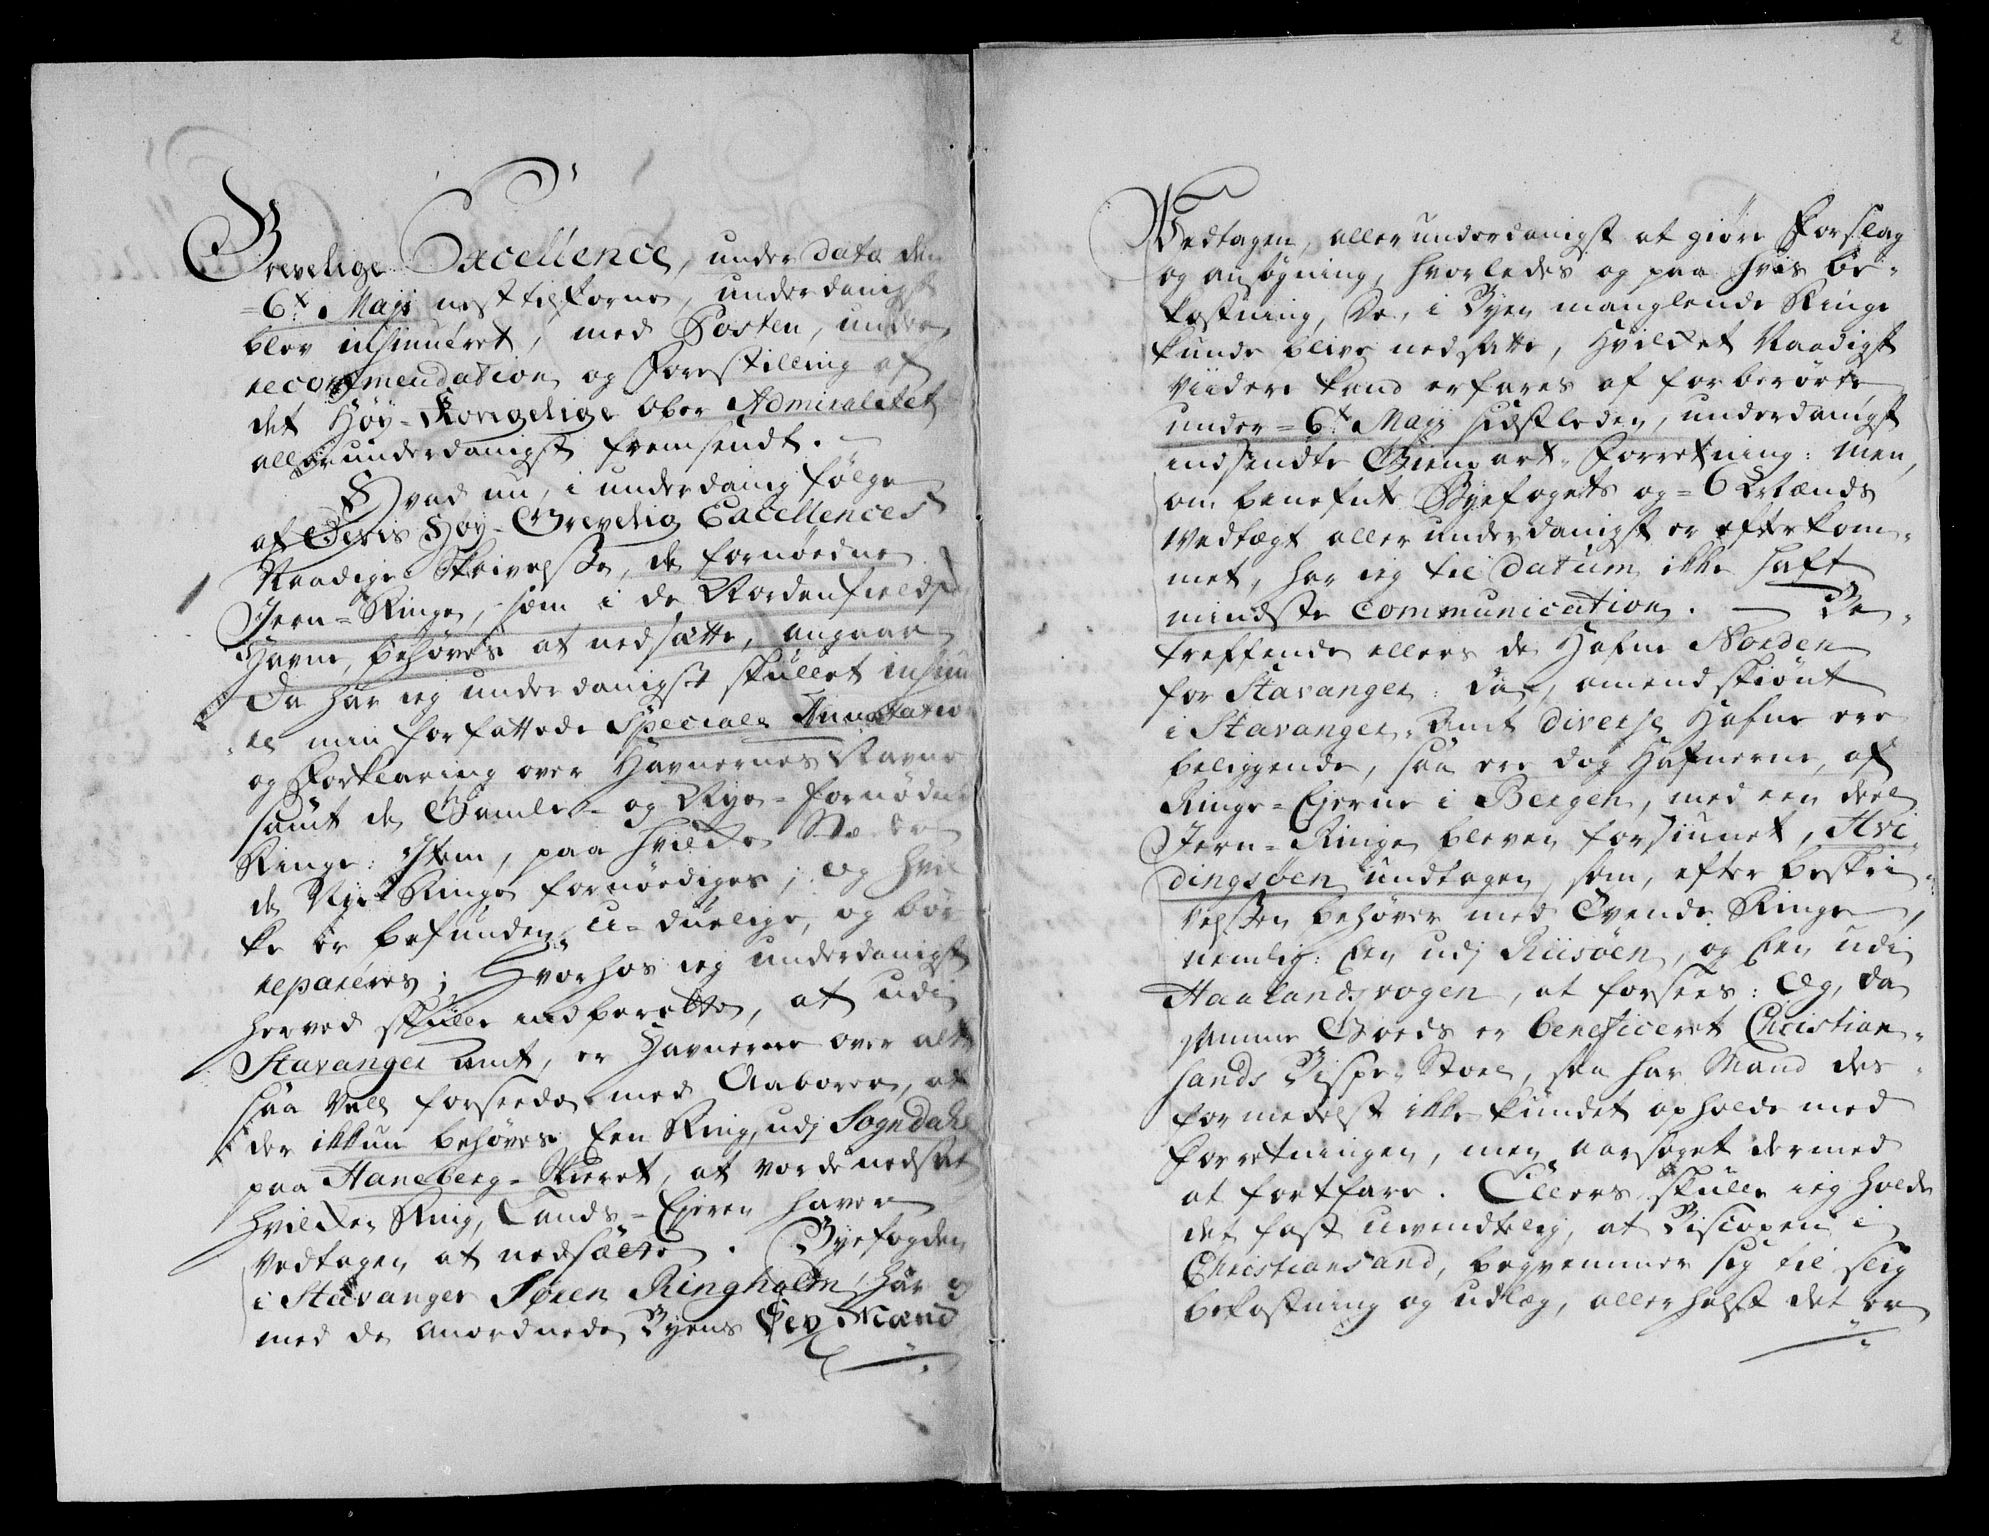 Grevelige Excellence, under dato den
=6t. Maji nest tilforne, underdanigst
blev insinueret, med Posten, under
recommendation og Forestilling af
det Høy-Kongelige Ober Admiralitet
allerunderdanigst fremsendt. –
Hvad nu, i underdanig følge
af Deris Høy-Grevelig Excellences
Naadige Skrivelsse, de fornødne
Jern=Ringe, som i de Nordenfieldske
Havne, behøves at nedsætte, angaar
Da har ieg underdanigst skullet insinu
re min forfattede Speciale Annotation
og Forklaring over Havnernes Navne
samt de Gamle- og Nye- fornødne
Ringe: Item, paa hvilke Stæder
de Nye Ringe fornødiges; og hvil
ke er befunden u-duelige, og bør
reparéres; Hvorhos ieg underdanigst
herved skulle indberette, at udi
Stavanger Amt, er Havnerne over alt
saa vell forseede med Aaboren, at
der ikkun behøves Een Ring, udj Sogndahl
paa Haneberg-Skieret, at vorde nedsat
hvilken Ring, Lands-Ejeren haver
vedtagen at nedsætte. Byefogden
i Stavanger Søren Ringholm, har og
med de anordnede Byens Sex Mænd
2
Vedtagen, allerunderdanigst at giøre Forslag
og ansøgning, hvorledes og paa hvis be-
kostning, De, i Byen manglende Ringe
kunde blive nedsatte, Hvilket Naadigst
viidere kand erfares af forberørte,
under =6t. Maji sidstleden, underdanigst
indsendte Gienpart-Forretning: men,
om benefnte Byefogets og =6 Mænds
Vedtægt allerunderdanigst er efterkom-
met, har ieg til Datum ikke haft
mindste Communication. — Be-
treffende ellers de Hafne Norden
for Stavanger: da, omendskiønt
i Stavanger-Amt diverse Hafne ere
beliggende, saa ere dog Hafnerne, af
Ringe=Ejerne i Bergen, med een deel
Jern=Ringe bleven forsiunet, Hvi-
dingsøen undtagen, som, efter beskri-
velsen behøver med Tvende Ringe,
nemlig: Een udj Riisøen, og Een udi
Haalandsvogen, at forsees: Og, da
samme Goeds er beneficeret Christian-
sands Bispe-Stoel, saa har Mand des-
formedelst ikke kundet opholde med
Forretningen, men aarsaget dermed
at fortfare. Ellers skulle ieg holde
det fast uvendtelig, at Biscopen i
Christiansand, beqvemmer sig til slig
bekostning og udlæg, allerhelst det er